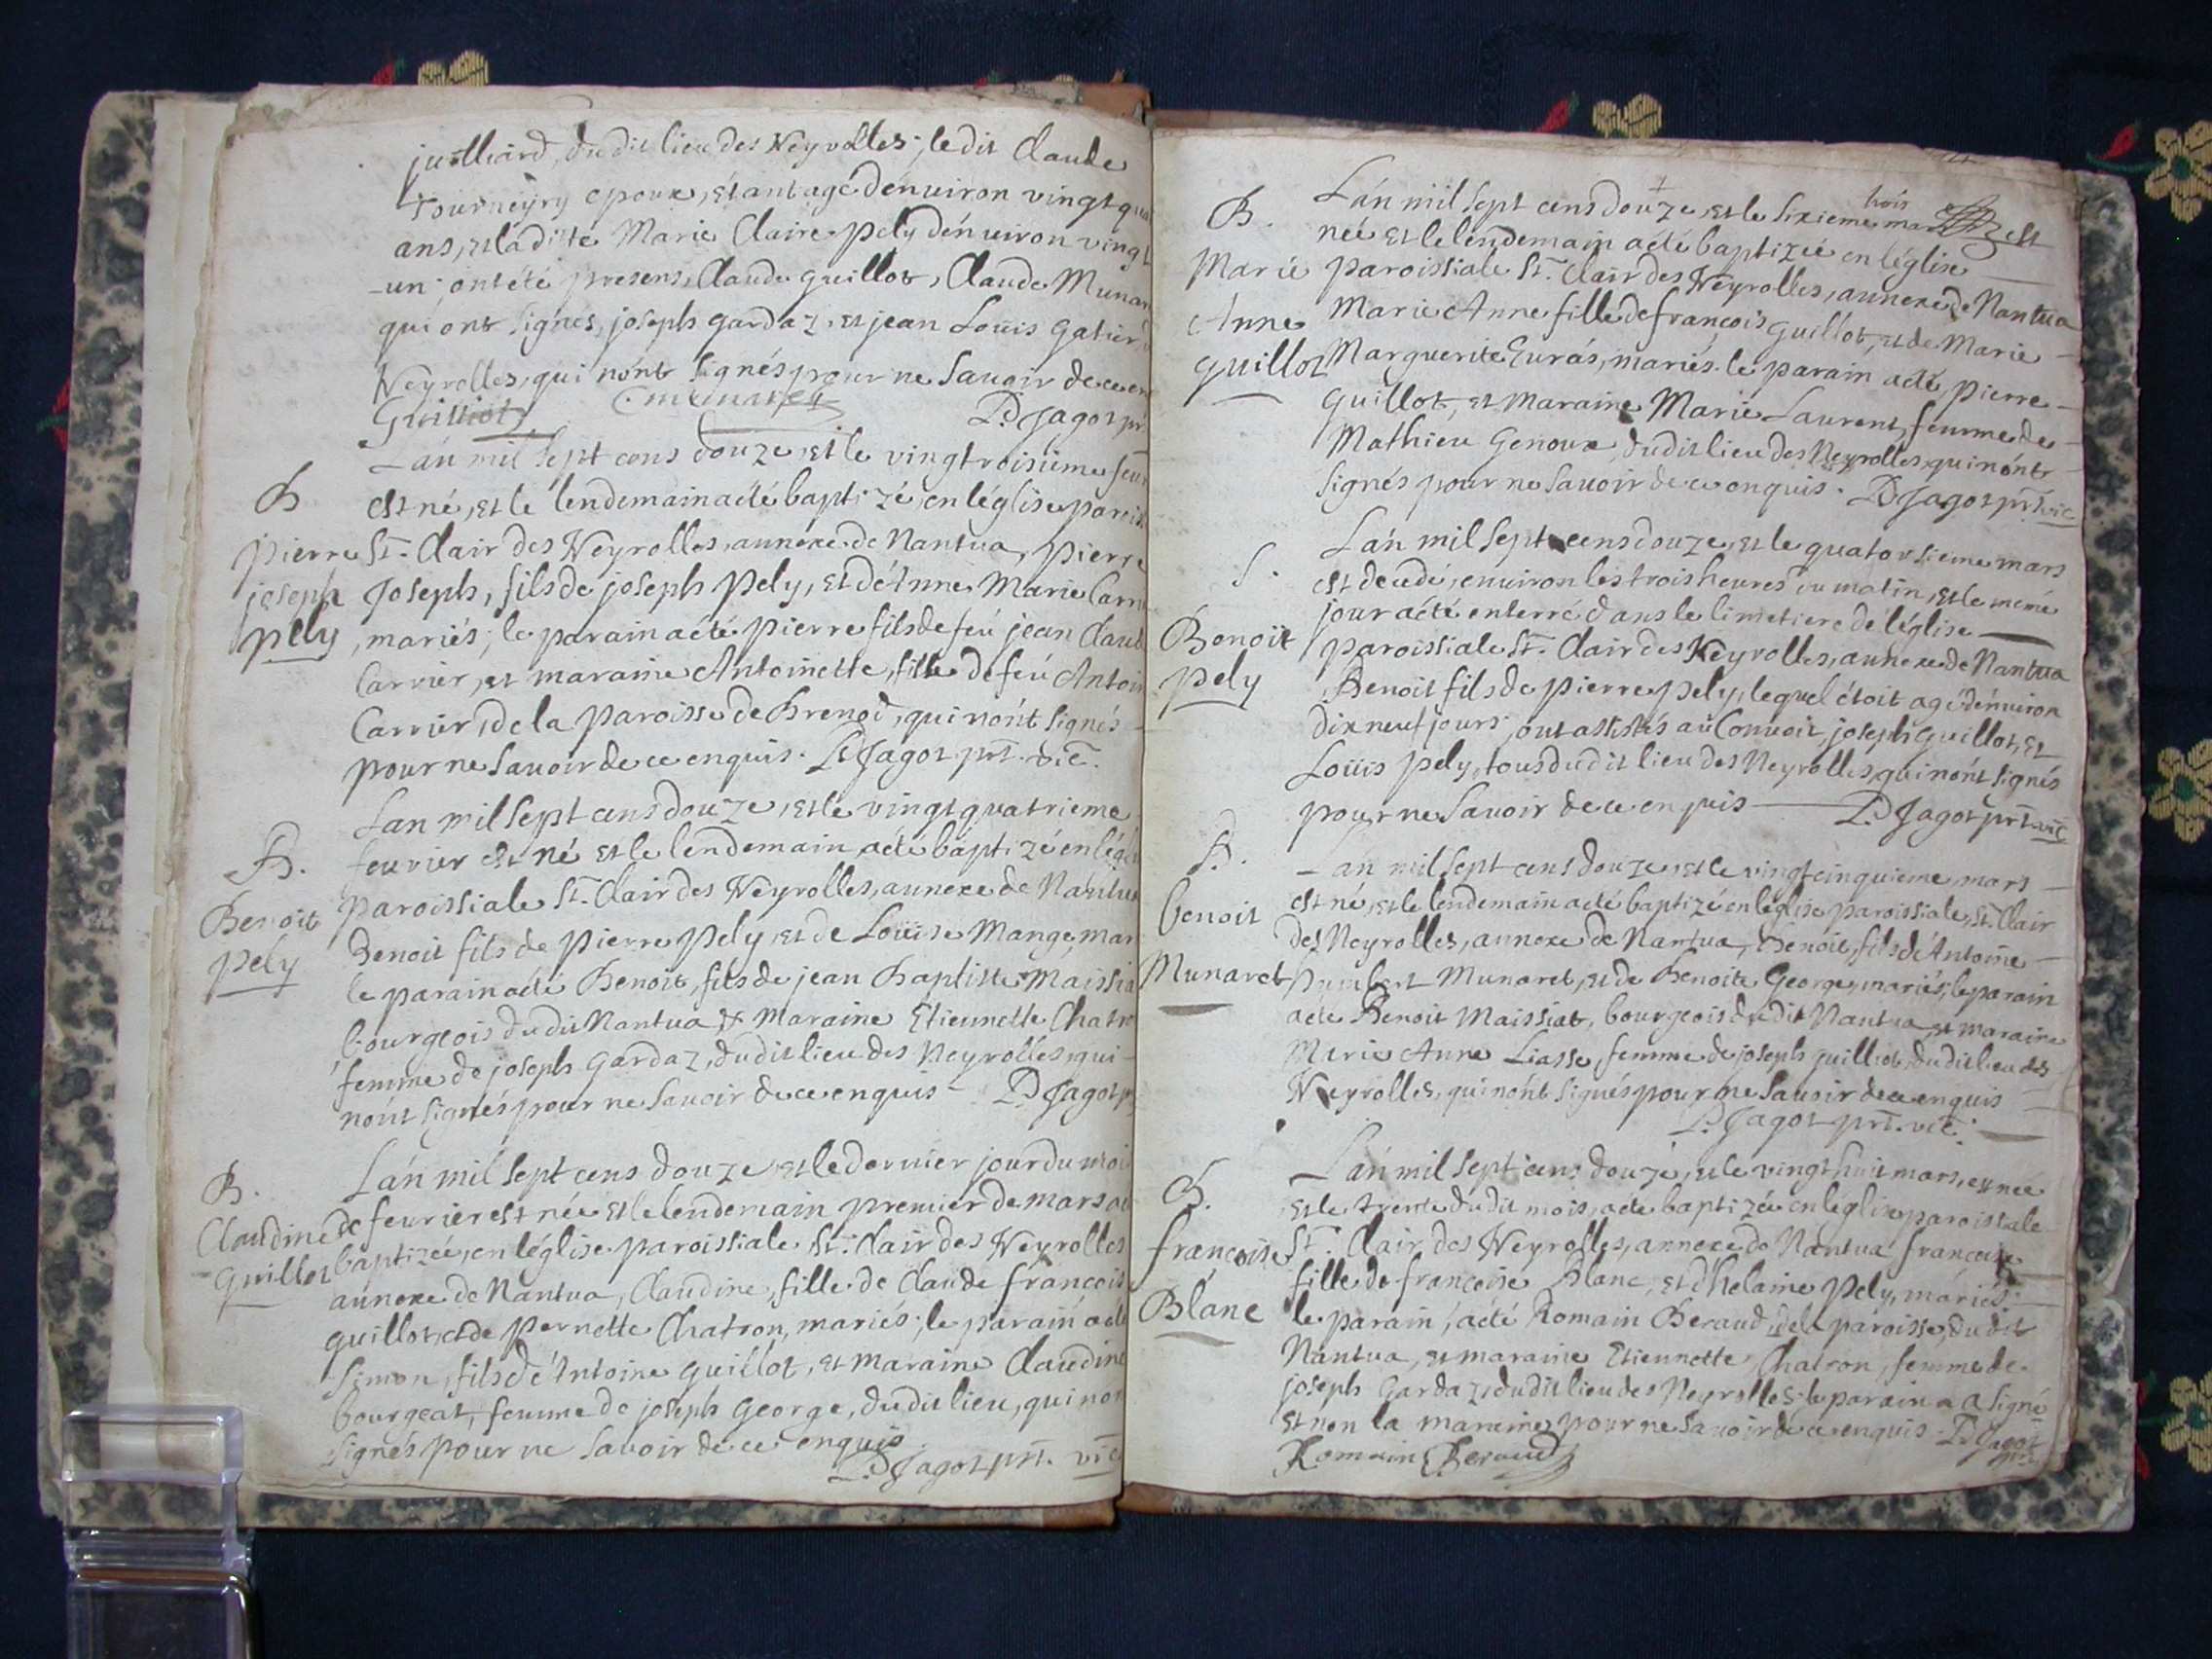 juilliard, dudit lieu des Neyrolles; le dit Claude
Tourneyry epoux, étant agé dénuiron vingt qua
ans, et la ditte Marie Claire pely dénuiron vingt
-un; ont été presens, Claude guillot, Claude Munar
qui ont signés, joseph gardaz, et jean Loüis gatier
Neyrolles, qui nónt signés pour ne Sauoir de ce en
Guilliot C. munaret P.D Jagot pr
Lán mil Sept cens douze, et le vingtroisiime feu
B
est né, et le lendemain a été baptizé, en léglise parois
pierre St. Clair des Neyrolles, annéxe de Nantua, pierre
joseph Joseph, fils de joseph Pely, et dé Anne Marie Carri
pely , mariés; le parain a été pierre fils de feú jean Claud
Carrier, et maraine Antoinette, fille de feú Antoin
Carrier, de la paroisse de Brenod, qui nónt signés
pour ne Sauoir de ce enquis. P.D Jagot prt. vic.
Lan mil Sept cens douze, et le vingt quatrieme
B. feurier est né et le lendemain a été baptizé en légli
paroissiale St. Clair des Neyrolles, annexe de Nantua
Benoit
Benoit fils de pierre pely, et de Loüise Mange, mar
pely
le parain a été Benoit, fils de jean Baptiste Maissia
bourgeois dudit Nantua & maraine Etiennette Chatro
femme de joseph gardaz, dudit lieu des Neyrolles, qui
nónt signés pour ne Sauoir de ce enquis P.D Jagot p
Lán mil Sept cens douze, et le dernier jour du moi
B.
de feurier est née et le lendemain premier de mars a é
Claudine baptizée, en léglise paroissiale St. Clair des Neyrolles
guillot
annexe de Nantua, Claudine, fille de Claude françois
guillot, et de pernette Chatron, mariés; le parain a été
Simon, fils dé Antoine guillot, et maraine Claudine
bourgeat, femme de joseph George, dudit lieu, qui non
signés pour ne Sauoir de ce enquis
P.D Jagot prt. vic
Lán mil Sept cens douze, et le Sixieme mars est
trois
B.
née et le lendemain a été baptizée en léglise
Marie paroissiale St. Clair des Neyrolles, annexe de Nantua
Marie Anne fille de françois guillot, et de Marie
Anne
guillot Marguerite Eurás, mariés. le parain a été, pierre
guillot, et maraine Marie Laurent, femme de
Mathieu Genoux, dudit lieu des Neyrolles, qui nónt
signés pour ne Sauoir de ce enquis. P.D Jagot prt. vic
Lán mil Sept cens douze, et le quatorsieme mars
S.
est decedé, enuiron les trois heures du matin, et le méme
jour a été enterré dans le Cimetiere de léglise
Benoit paroissiale St. Clair des Neyrolles, annexe de Nantua
pely
Benoit fils de pierre pely, lequel étoit agé dénuiron
dix neuf jours; ont assistés aú Conuoit, joseph guillot, et
Loüis pely, tous dudit lieu des Neyrolles, qui nónt signés
pour ne Sauoir de ce enquis P.D Jagot prt. vic
B.
an mil Sept cens douze, et le vingtcinquieme mars
benoit est né, et le lendemain a été baptizé en léglise paroissiale, St. Clair
des Neyrolles, annexe de Nantua, Benoit, fils dé Antoine
Munaret humbert Munaret, et de Benoite George, mariés, le parain
a été Benoit Maissiat, bourgeois dudit Nantua, et maraine
Marie Anne Liasse, femme de joseph guilliot, dudit lieu des
Neyrolles, qui nónt signés pour ne Sauoir de ce enquis
P.D Jagot prt. vic.
Lán mil Sept cens douze, et le vingt huit mars, es née
B.
et le trente dudit mois, a été baptizée en léglise paroissiale
françoise St. Clair des Neyrolles, annexe de Nantua françoise
fille de françoise Blanc, et dhelaine pely, mariés
Blanc le parain, a été Romain Beraud, de la paroisse, dudit
Nantua, et maraine Etiennette Chatron, femme de
joseph gardaz, dudit lieu des Neyrolles; le parain a a signé
et non la maraine, pour ne Sauoir de ce enquis P.D Jagot
prt
Romain Beraud